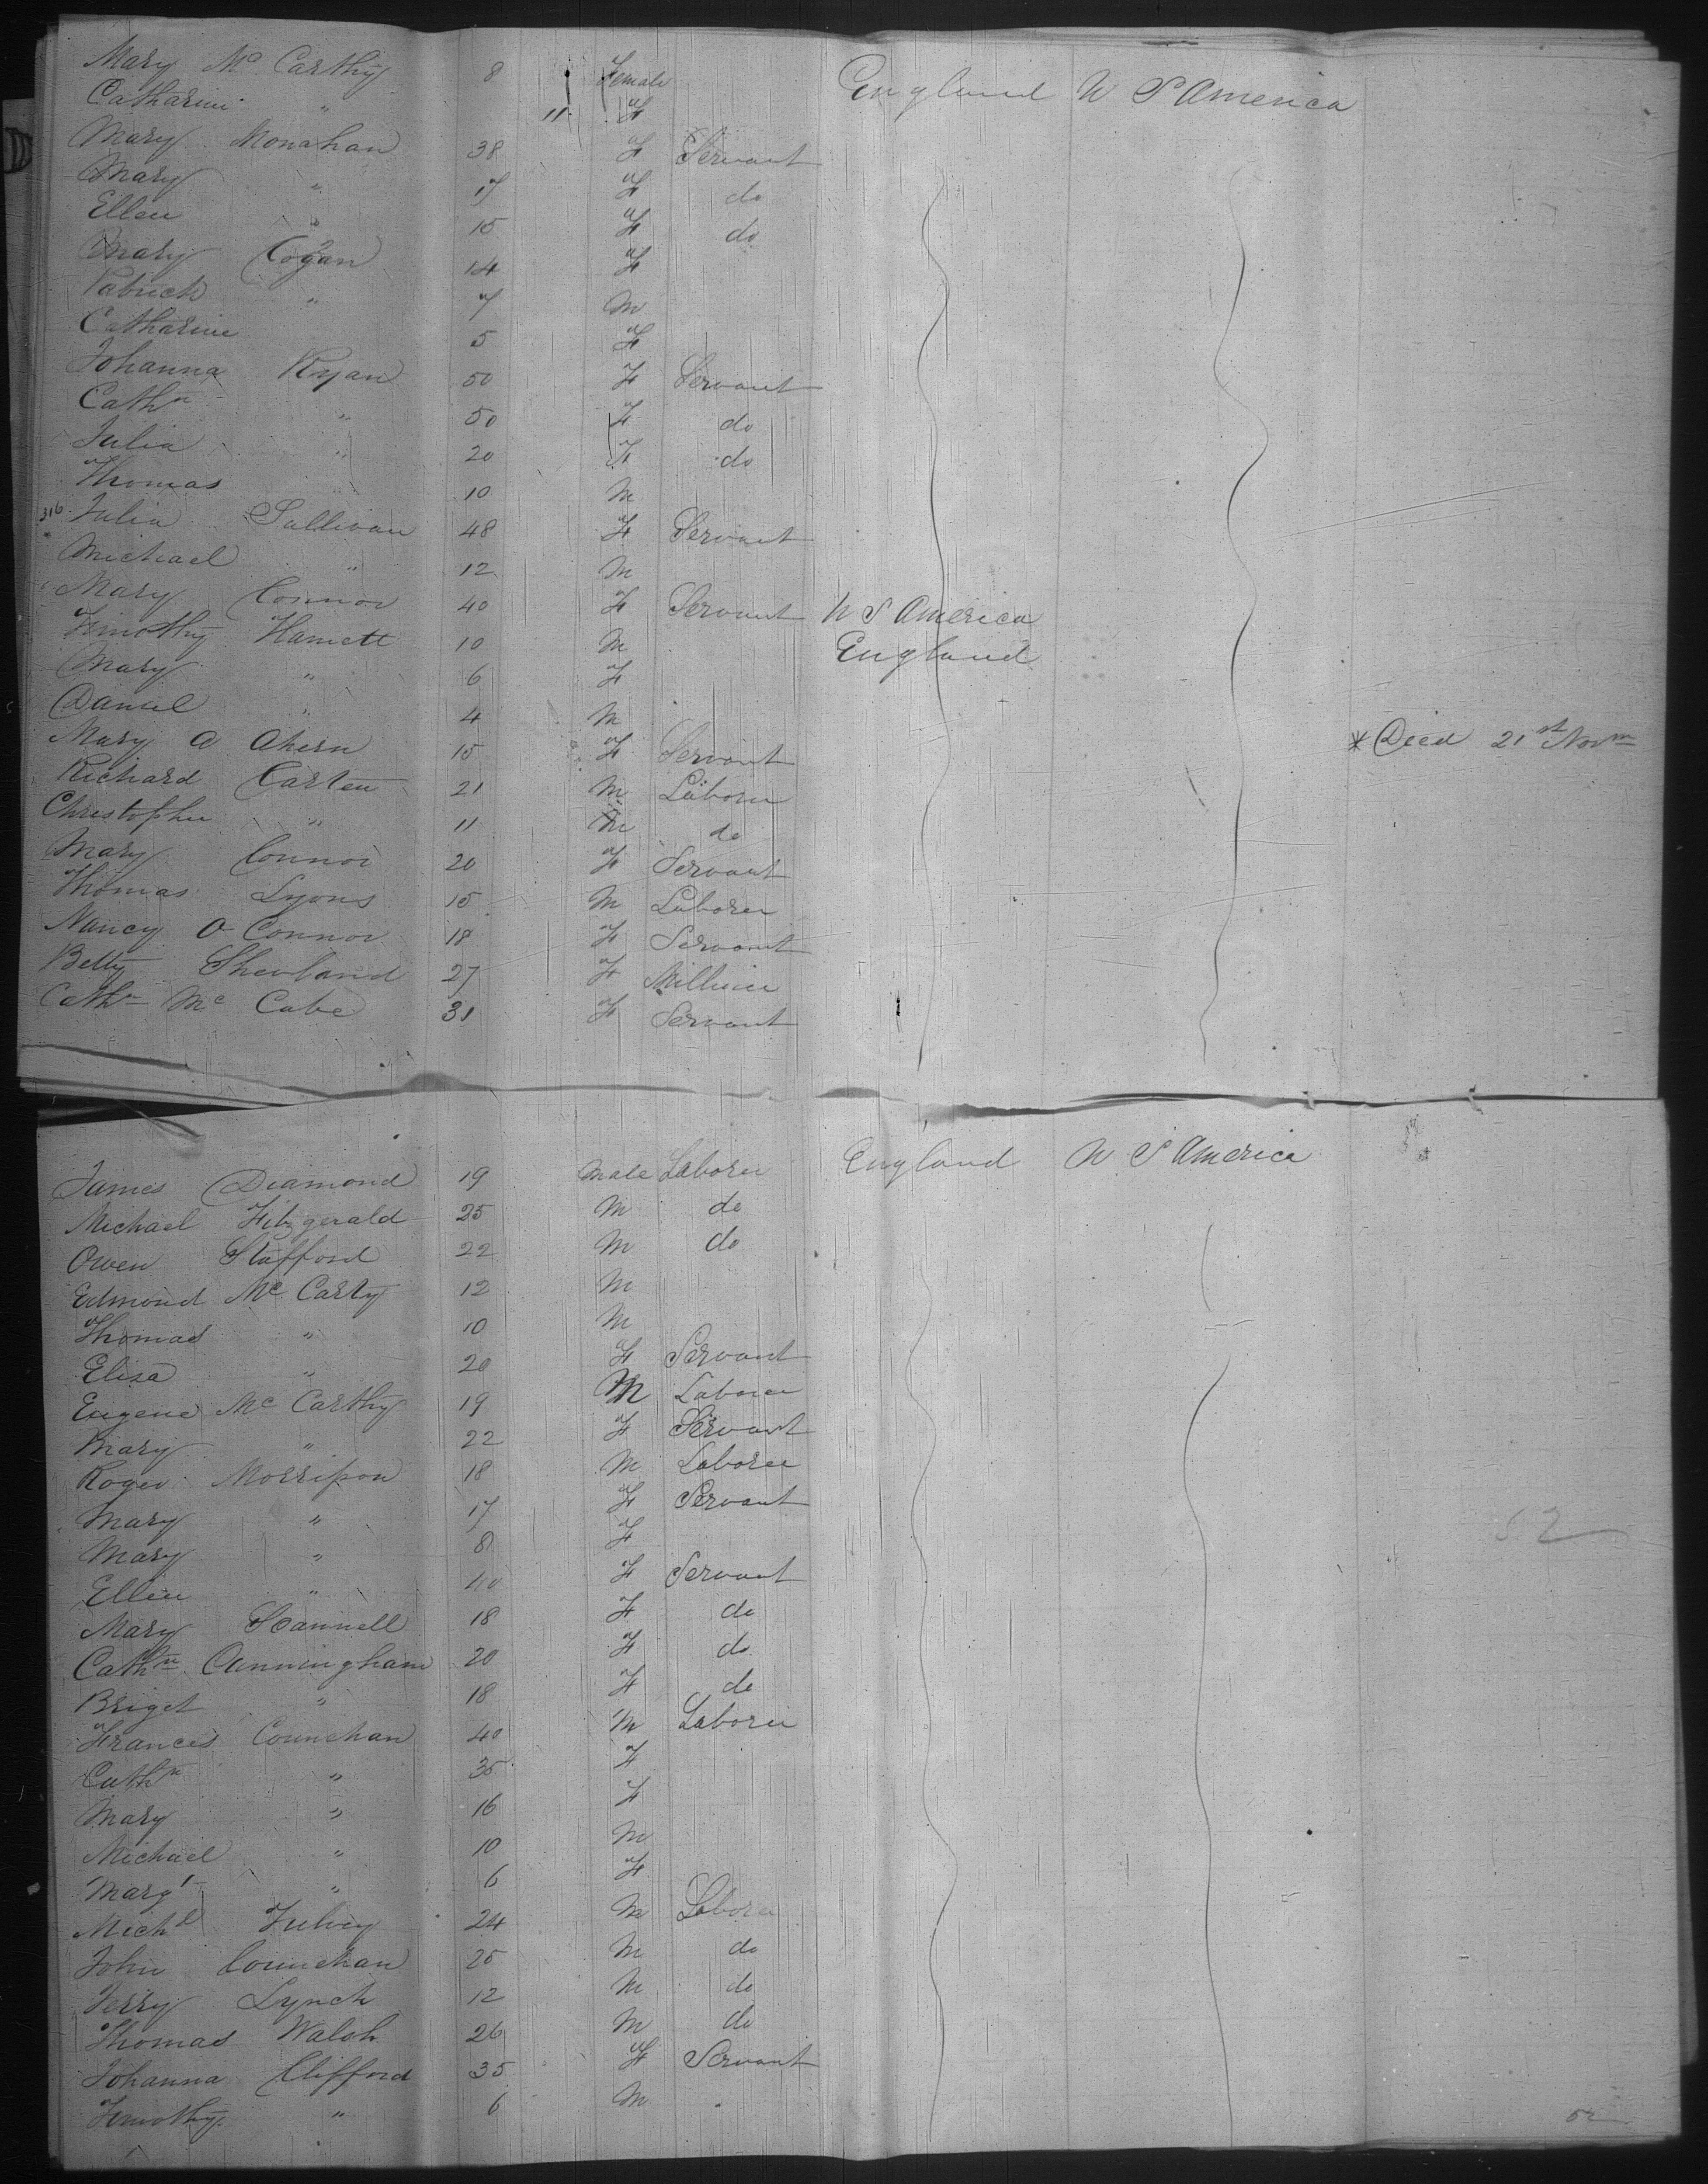 Mary Mc Carthy 8 Female England U S America
Catharine " 11 F
Mary Monahan 38 F Servant
Mary " 17 F do
Ellen " 15 F do
Mary Cogan 14 F
Patrick " 7 M
Catharine 5 F
Johanna Ryan 50 F Servant
Cathn " 50 F do
Julia " 20 F do
Thomas " 10 M
316 Julia Sullivan 48 F Servant
Michael " 12 M
Mary Connor 40 F Servant U S America
Timothy Hamett 10 M England
Mary " 6 F
Daniel " 4 M
Mary A Ahern 15 F Servant * Died 21st Novm
Richard Carten 21 M Laborer
Christopher " 11 M do
Mary Connor 20 F Servant
Thomas Lyons 15 M Laborer
Nancy O Connor 18 F Servant
Betty 27 F Milliner
Cathn Mc Cabe 31 F Servant
James Diamond 19 Male Laborer England U S America
Michael Fitzgerald 25 M do
Owen Stafford 22 M do
Edmond Mc Carty 12 M
Thomas " 10 M
Eliza " 20 F Servant
Eugene Mc Carthy 19 M Laborer
Mary " 22 F Servant
Roger Morrison 18 M Laborer
Mary " 17 F Servant
Mary " 8 F
Ellen " 40 F Servant
Mary Scannell 18 F do
Cathn Cunningham 20 F do
Briget " 18 F do
Frances Counehan 40 M Laborer
Cathn " 35 F
Mary " 16 F
Michael " 10 M
Margt " 6 F
Michl Fulvey 24 M Laborer
John Counehan 25 M do
Jerry Lynch 12 M do
Thomas Walsh 26 M do
Johanna Clifford 35 F Servant
Timothy " 6 M
52
52